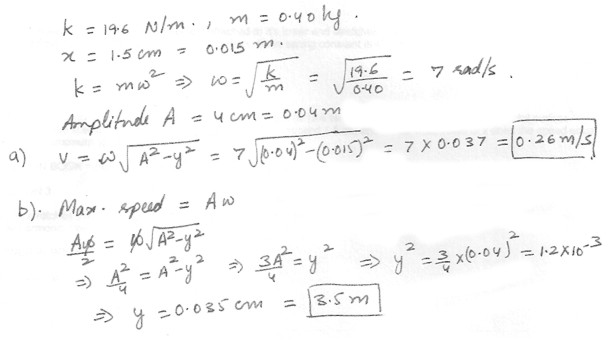 k = 19.6 N/m. , m = 0.40 kg.
x = 1.5 cm = 0.015 m.
k = mω² ⇒ ω = √(k/m) = √(19.6/0.40) = 7 rad/s.
Amplitude A = 4 cm = 0.04 m
a) V = ω √(A²-y²) = 7√((0.04)²-(0.015)²) = 7 × 0.037 = 0.26 m/s
b). Max. speed = Aω
Aω/2 = ω √(A²-y²)
⇒ A²/4 = A²-y² ⇒ 3A²/4 = y² ⇒ y² = 3/4 × (0.04)² = 1.2×10⁻³
⇒ y = 0.035 cm = 3.5 m